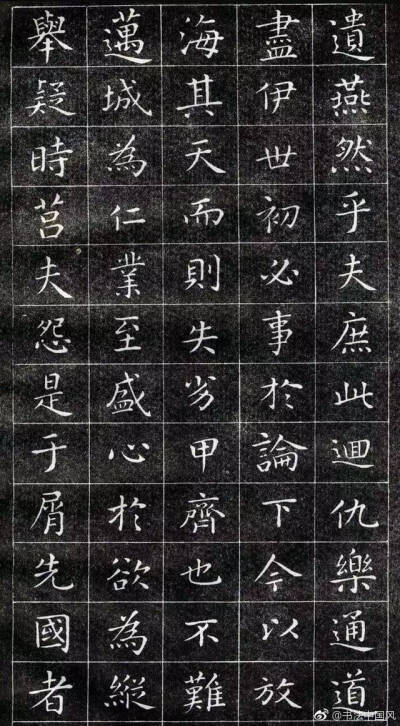 遺燕然乎夫庶此迴仇樂通道
盡伊世初必事於論下今以放
海其天而則失劣甲齊也不難
邁城為仁業至盛心於欲為縱
舉疑時莒夫怨是于屑先國者
@书法中国风